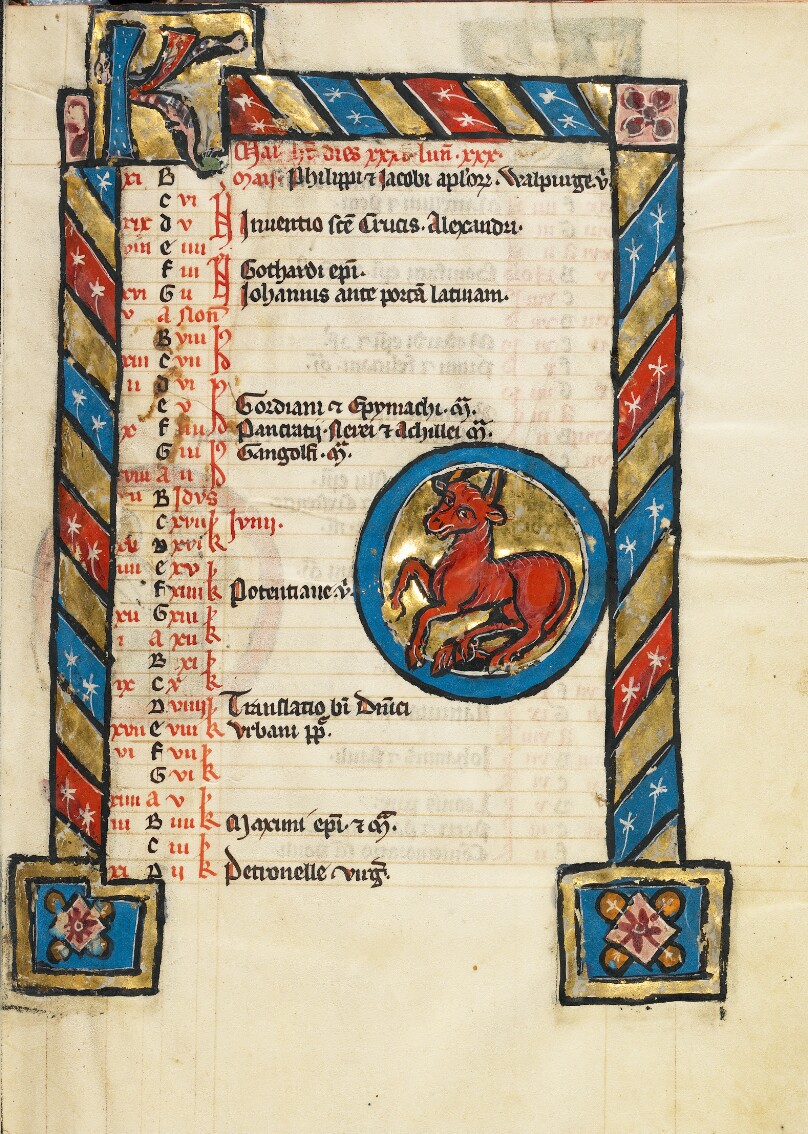 K
Mai hʒ dies xxxi lun̄ xxx.
xi B Maij Philippi ⁊ Jacobi aplorꝝ. Walpurge v̄.
c vi N
xix d v Inuentio sc̄e Crucis. Alexandri.
viii e iiii
f iii N Gothardi ep̄i.
xvi G ii Johannis ante portā latinam.
v A Non̄
B viii Id
xiii c vii
ii d vi Id
e v Gordiani ⁊ Epymachi. m̄.
x f iiii Id Panciatij. Nerei ⁊ Achillei m̄.
G iii Id Gangolfi. m̄.
xviii A ii
vii B Idus
c xvii k Junii.
D xvi k
iiii e xv k
f xiiii k Potentiane v̄.
xii G xiii k
i A xii k
B xi k
ix c x k
D viiii k Translatio bī Dn̄ici
xvii e viii k Vrbani pp̄.
vi f vii k
G vi k
xiiii A v k
iii B iiii k Maximi ep̄i. ⁊ m̄.
c iii k
xi D ii k Petronelle virḡ.